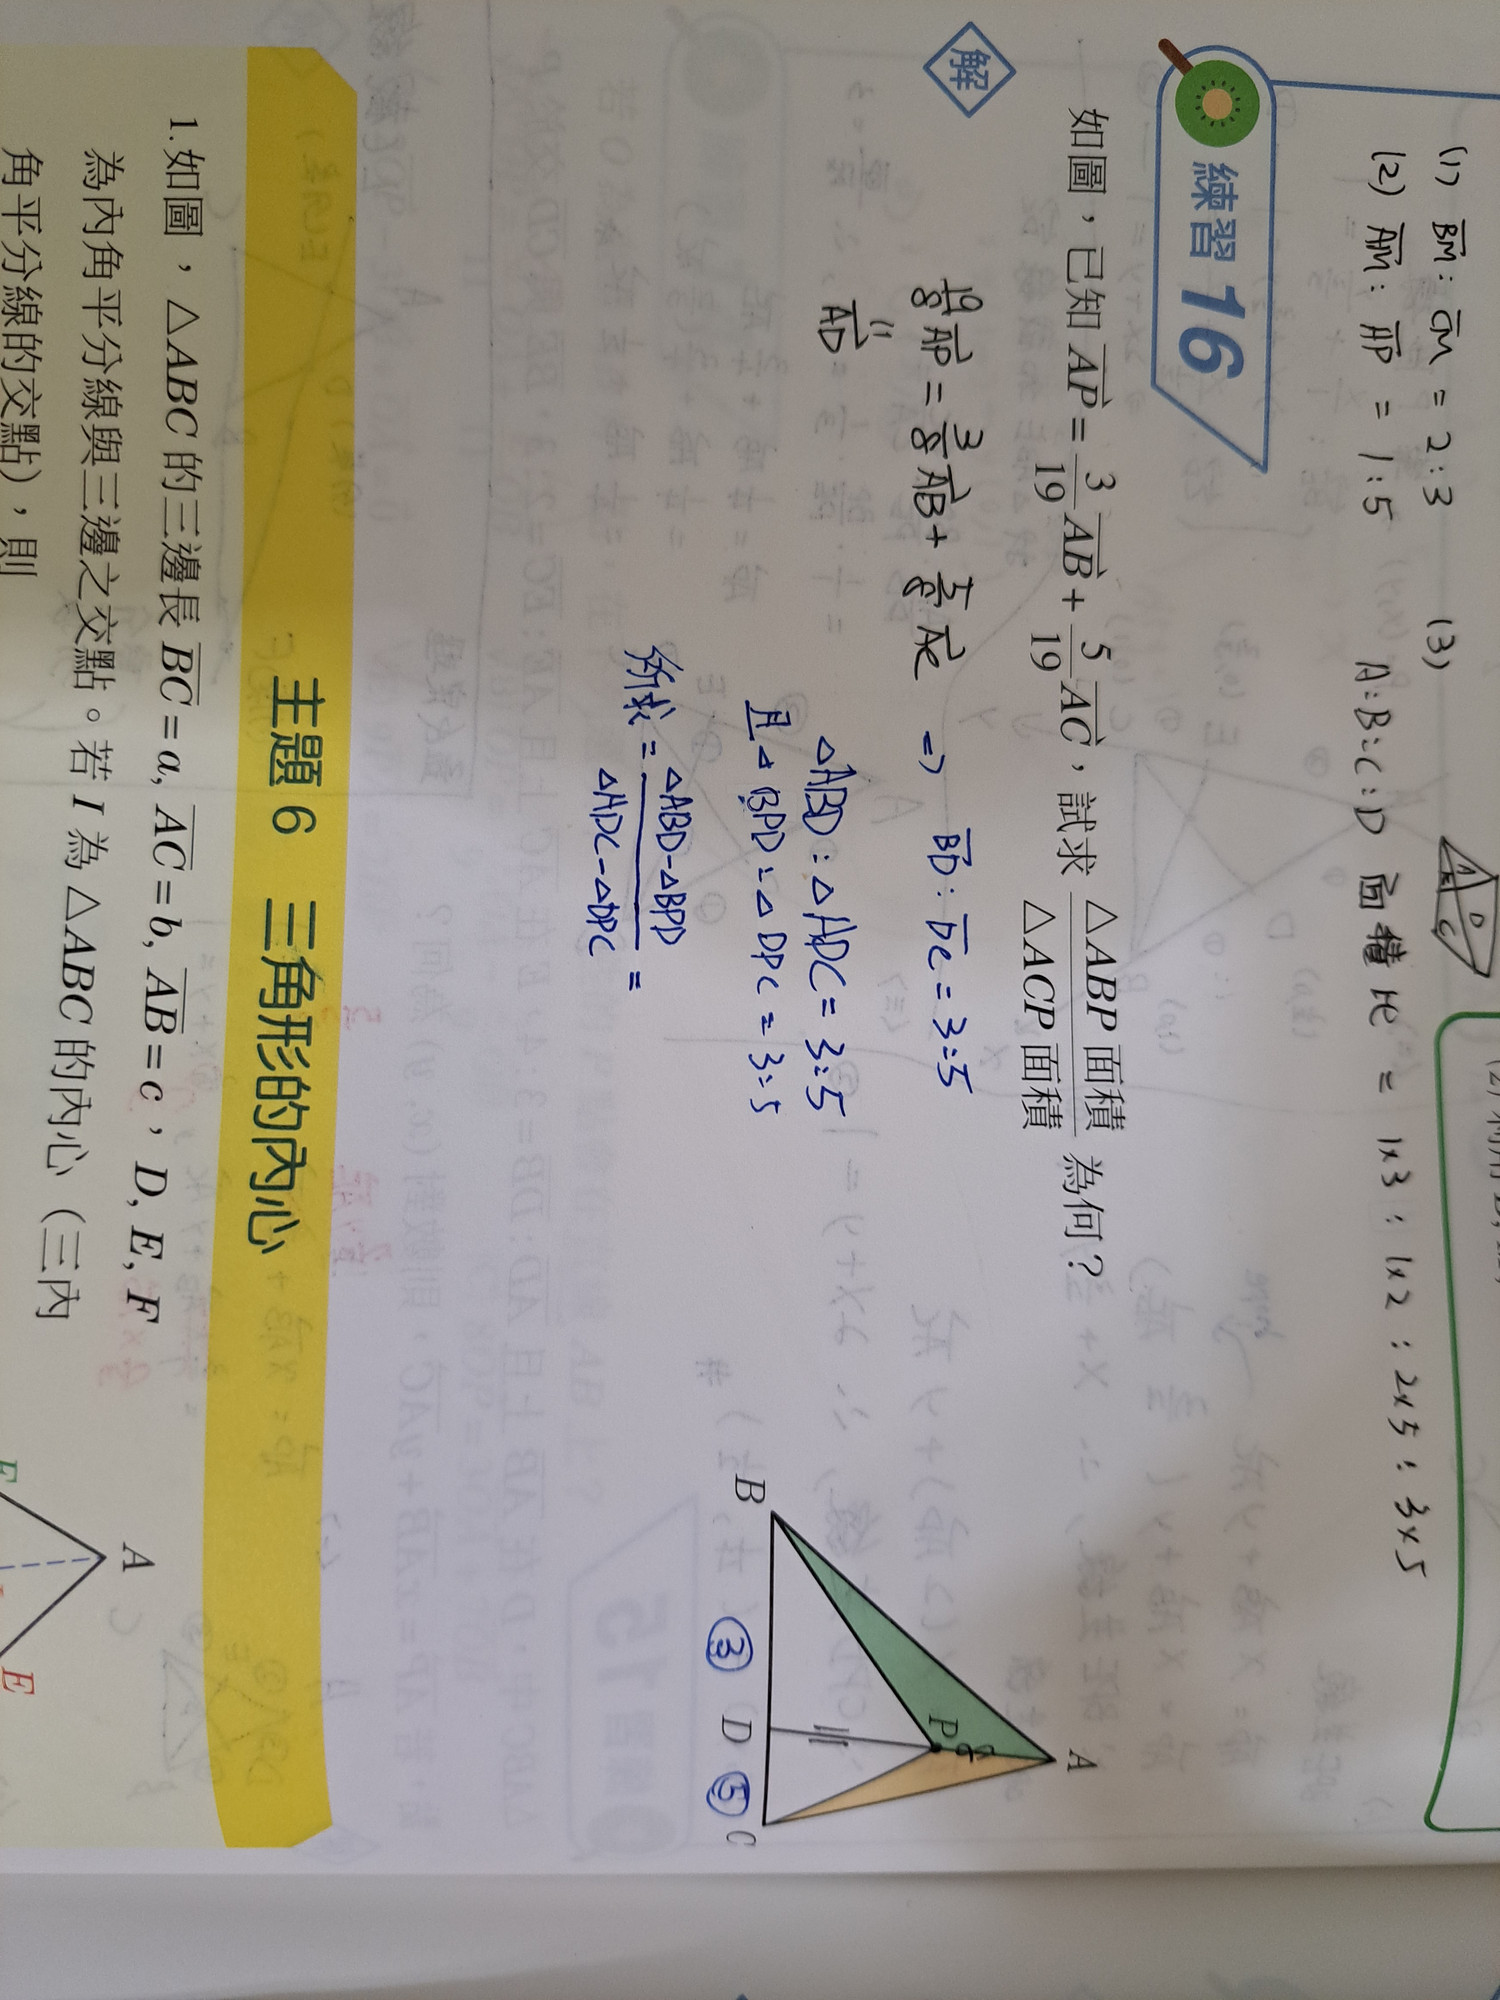 (1) BM : CM = 2:3
(2) AM : AP = 1:5
(3) A:B:C:D 面積比 = 1×3 : 1×2 : 2×5 : 3×5
A
B
C
D
練習 16
如圖,已知 AP = 3/19 AB + 5/19 AC,試求 △ABP 面積/△ACP 面積 為何?
解
19/8 AP = 3/8 AB + 5/8 AC ⇒ BD : DC = 3:5
"
AD
△ABD : △ADC = 3:5
且 △BPD : △DPC = 3:5
所求 = △ABD-△BPD/△ADC-△DPC =
A
P
B
③
D
⑤
C
主題 6 三角形的內心
1. 如圖,△ABC 的三邊長 BC = a, AC = b, AB = c,D, E, F
為內角平分線與三邊之交點。若 I 為 △ABC 的內心(三內
角平分線的交點),則
A
F
E